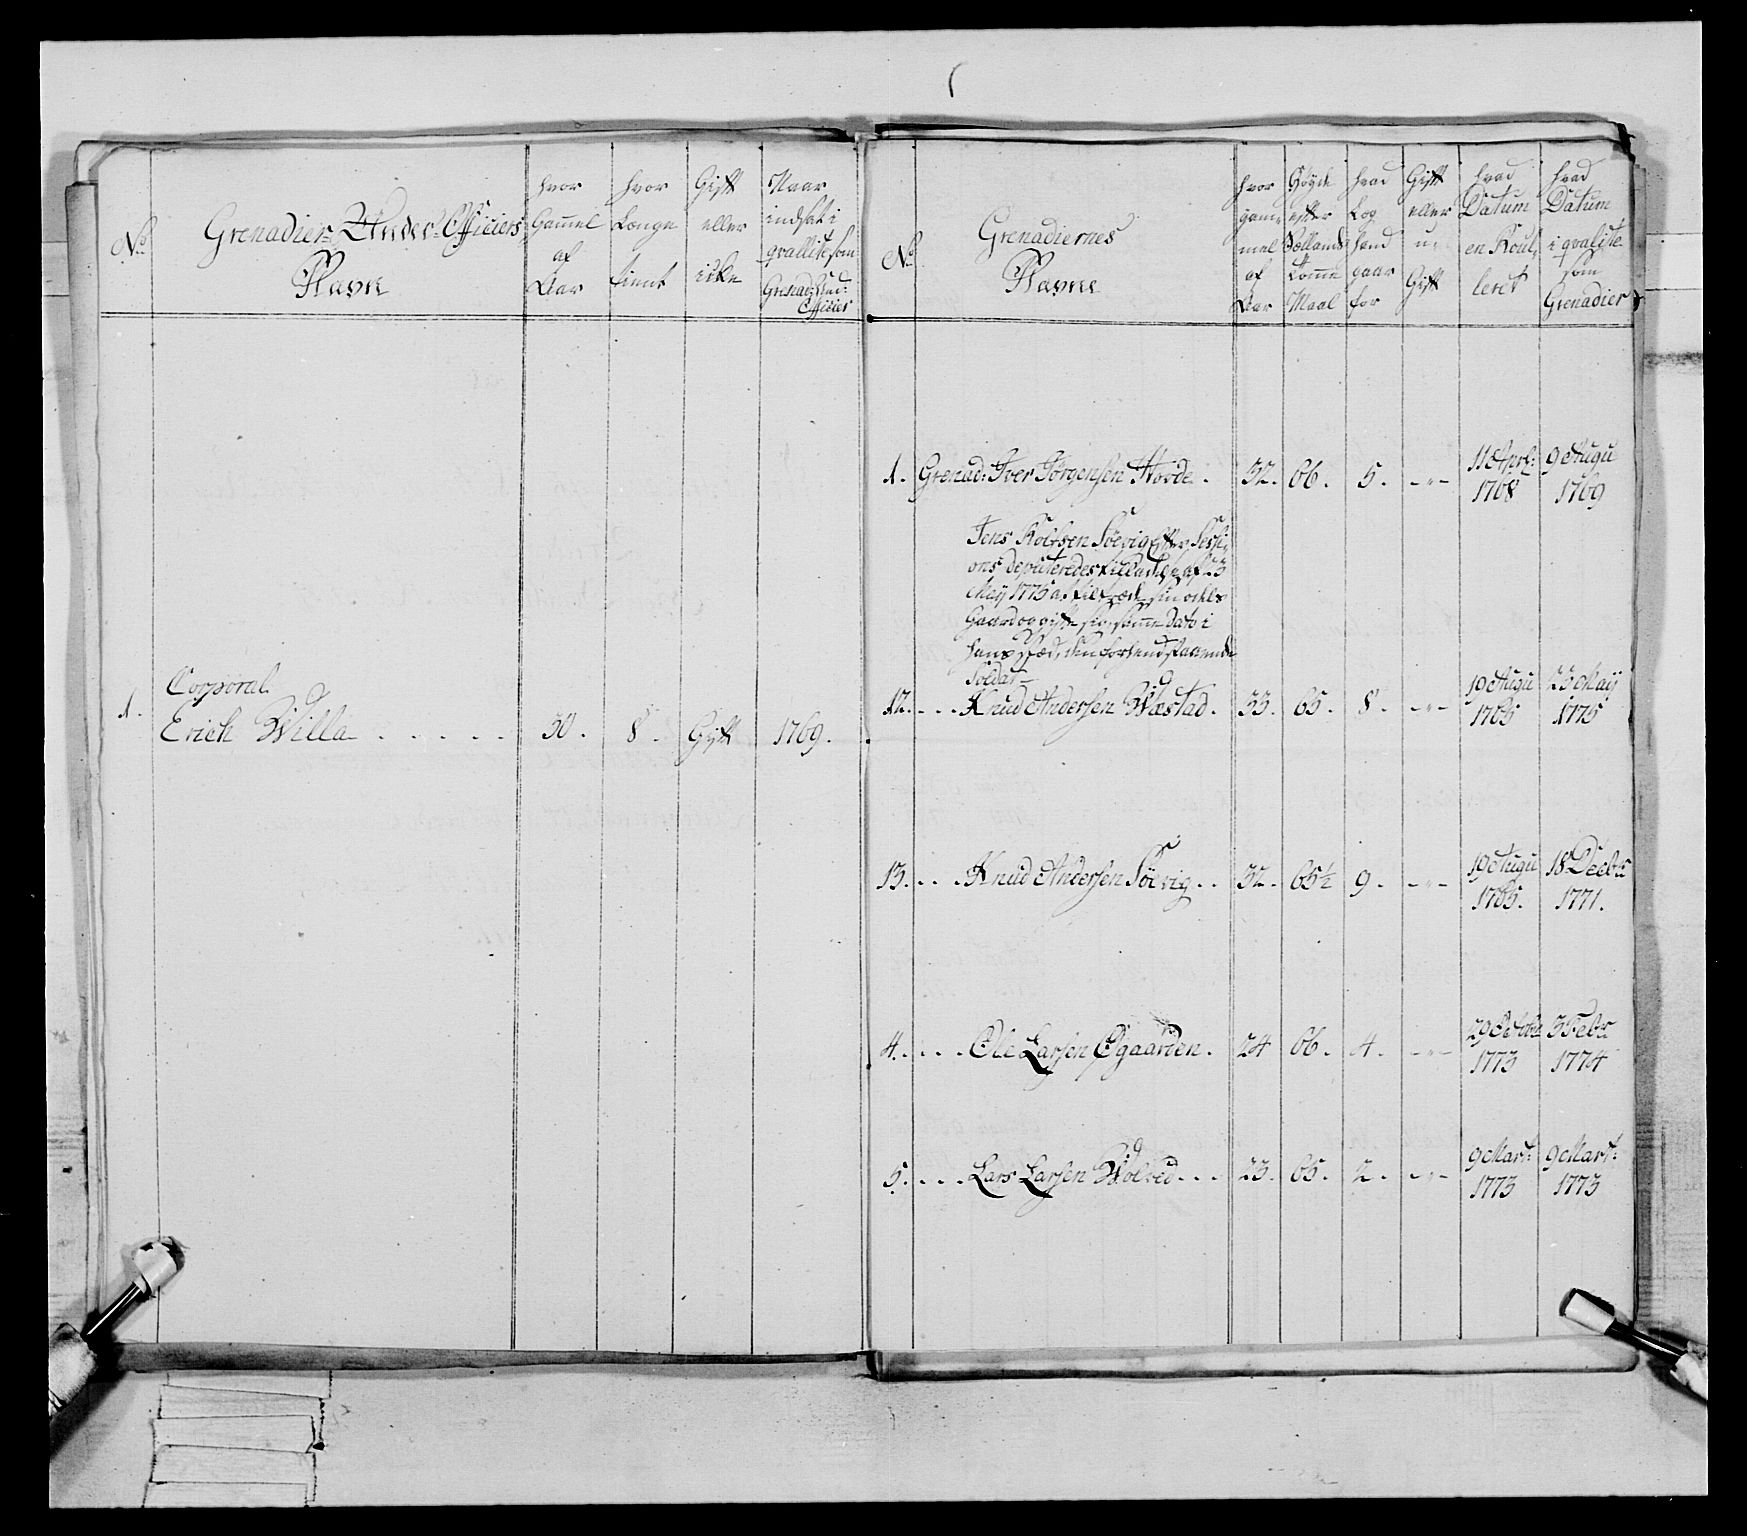 No.
Grenadier= Under=Officiers
Navne
hvor
Gamel
af
Aar
hvor
Længe
tient
Gift
eller
icke
Naar
indsat i
qvallitet som
Grenad: Und:
Officier
1. Corporal
Erich Willa . . . . . 30. 8. Gift 1769.
No.
Grenadiernes
Navne
hvor
gam-
mel
af
Aar
Høyde
efter
Sællands
Tomme
Maal
hvad
Log
hand
gaar
for
Gift
eller
u-
Gift
hvad
Datum
en Roul-
leret
hvad
Datum
i qvalitet
som
Grenadier
1. Grenad: Iver Jørgensen Hovde. 32. 66. 5. -"- 11 Apr: 1768 9 Augu 1769
Jens Rolfsen Söevig efter Sessi-
ons deputeredes tilladelse af 23
May 1775 at
Gaard og gifte sig, samme Dato i
hans Stæd, den forhen staaende
Soldat
12. . . . Knud Andersen Wæstad. 33. 65. 8. -"- 19 Augu 1765 23 May 1775
13. . . . Knud Andersen Söevig . . 32. 65½ 9. -"- 19 Augu 1765. 18 Decbr 1771.
4. . . . Ole Larsen Øgaarden. 24 66. 4. -"- 29 Octobr 1773 3 Febr 1774
5. . . . Lars Larsen Wolred . . . 23. 65. 2. -"- 9 Mart: 1773 9 Mart: 1773